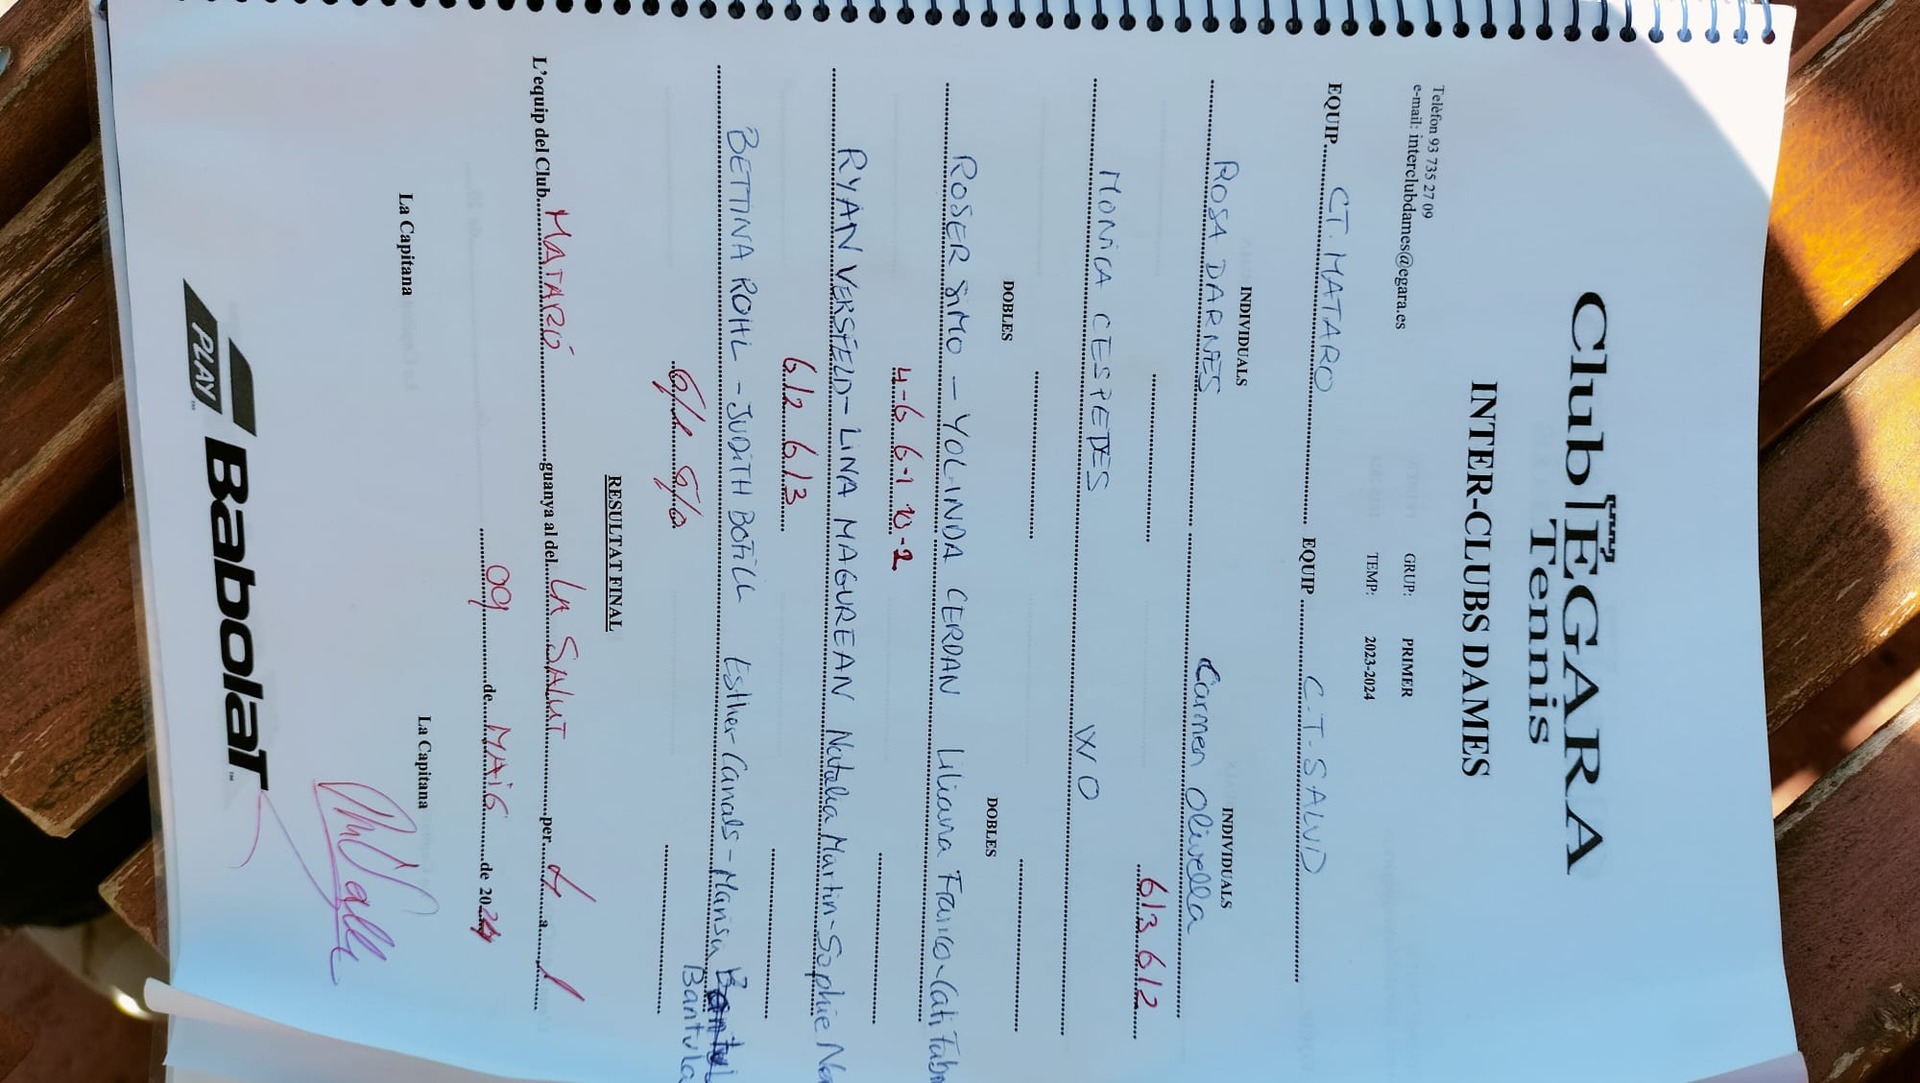 Club EGARA
Tennis
INTER-CLUBS DAMES
Telèfon 93 735 27 09
e-mail: interclubdames@egara.es
GRUP: PRIMER
TEMP: 2023-2024
EQUIP CT. MATARO EQUIP C.T. SALUD
INDIVIDUALS INDIVIDUALS
ROSA DARNES Carmen Olivella
6/3 6/2
MONICA CESPEDES WO
DOBLES DOBLES
ROSER SIMO - YOLANDA CERDAN Liliana Franco - Cati
4-6 6-1 10-2
RYAN VERSFELD - LINA MAGUREAN Natalia Martin - Sophie
6/2 6/3
BETTINA ROHL - JUDITH BOFILL Esther Canals - Marisa
Bantula
6/1 6/0
RESULTAT FINAL
L'equip del Club MATARÓ guanya al del LA SALUT per 4 a 1
09 de MAIG de 2024
La Capitana La Capitana
PLAY Babolat